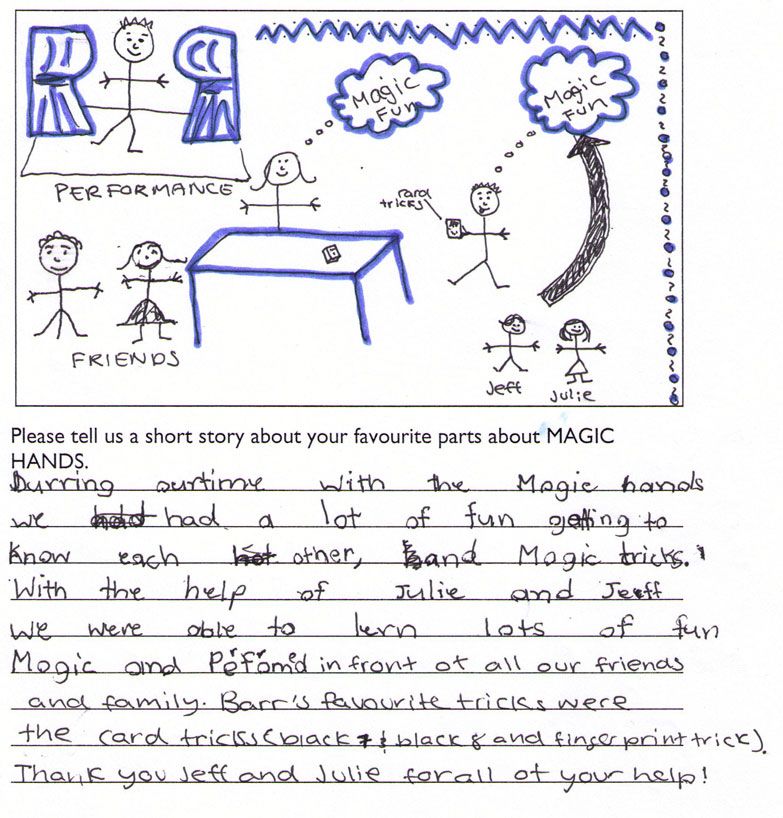 Magic
Fun
Magic
Fun
PERFORMANCE
card
tricks
FRIENDS
Jeff
Julie
Please tell us a short story about your favourite parts about MAGIC
HANDS.
Durring ourtime with the Magic hands
we had a lot of fun getting to
know each other, and Magic tricks.
With the help of Julie and Jeff
we were able to lern lots of fun
Magic and Perform'd in front of all our friends
and family. Barr's favourite tricks were
the card tricks (black & black 8 and fingerprint trick).
Thank you Jeff and Julie for all of your help!